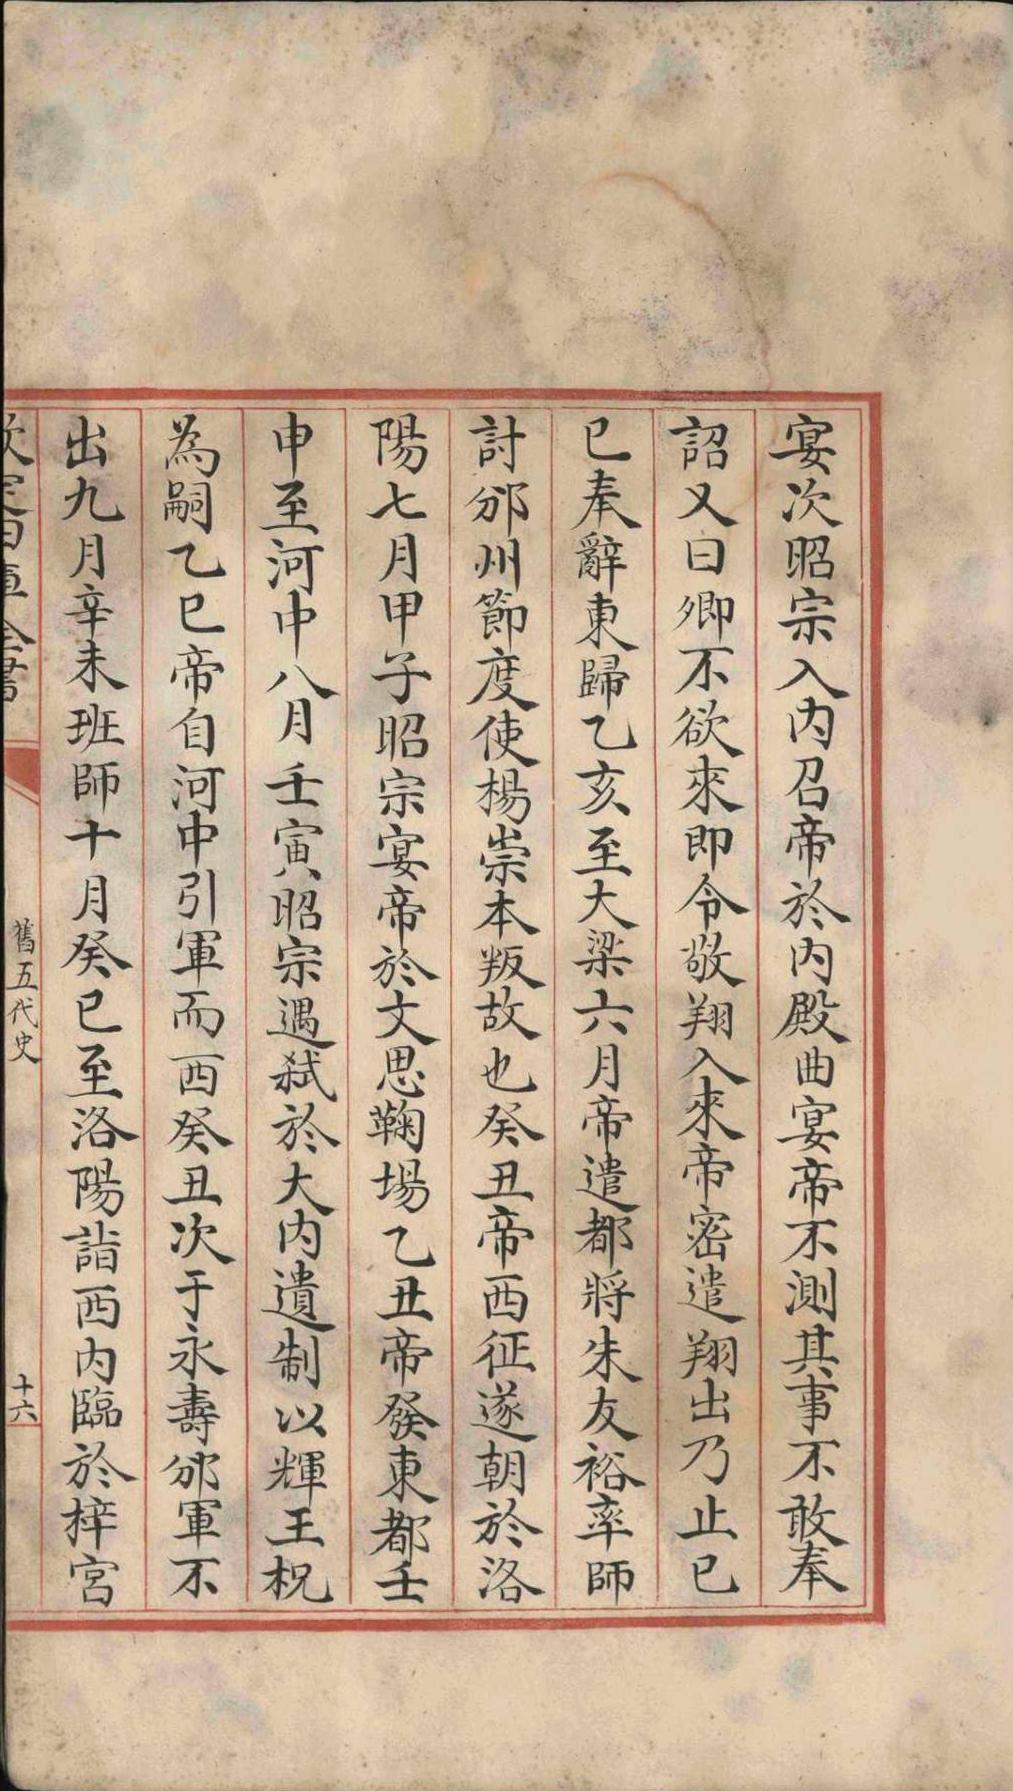 宴次昭宗入内召帝於内殿曲宴帝不測其事不敢奉
詔又曰卿不欲來即令敬翔入來帝密遣翔出乃止已
巳奉辭東歸乙亥至大梁六月帝遣都將朱友裕率師
討邠州節度使楊崇本叛故也癸丑帝西征遂朝於洛
陽七月甲子昭宗宴帝於文思鞠場乙丑帝發東都壬
申至河中八月壬寅昭宗遇弑於大内遺制以輝王柷
為嗣乙巳帝自河中引軍而西癸丑次于永壽邠軍不
出九月辛未班師十月癸巳至洛陽詣西内臨於梓宮
欽定四庫全書
舊五代史
十六